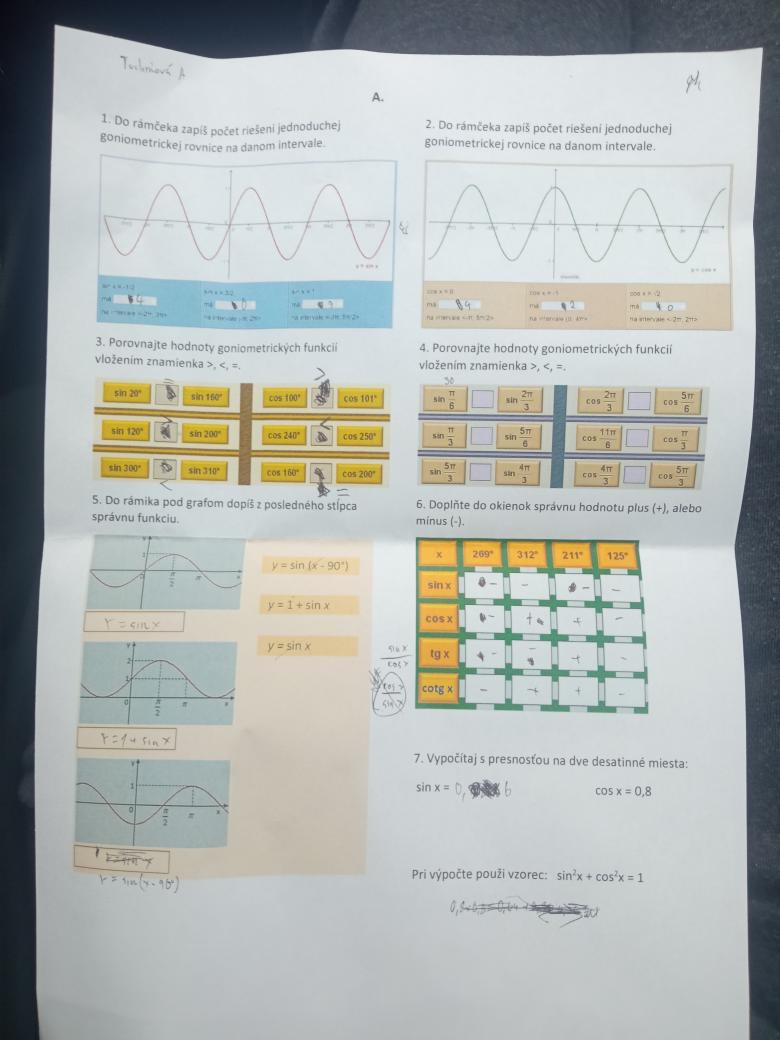 A.
1. Do rámčeka zapíš počet riešení jednoduchej
goniometrickej rovnice na danom intervale.
y = sin x
sin x = -1/2
má 4
na intervale
sin x = 3/2
má 0
na intervale
sin x = 1
má
na intervale
2. Do rámčeka zapíš počet riešení jednoduchej
goniometrickej rovnice na danom intervale.
y = cos x
cos x = 0
má 4
na intervale
cos x = -1
má 2
na intervale
má 0
na intervale <-2π, 2π>
3. Porovnajte hodnoty goniometrických funkcií
vložením znamienka >, <, =.
sin 20° = sin 160°
cos 100° > cos 101°
sin 120° sin 200°
cos 240° < cos 250°
sin 300° < sin 310°
cos 160° = cos 200°
4. Porovnajte hodnoty goniometrických funkcií
vložením znamienka >, <, =.
30
sin π/6 sin 2π/3
cos 2π/3 cos 5π/6
sin π/3 sin 5π/6
cos 11π/6 cos π/3
sin 5π/3 sin 4π/3
cos 4π/3 cos 5π/3
5. Do rámika pod grafom dopíš z posledného stĺpca
správnu funkciu.
1
0 π/2 π x
Y = sin x
y
2
1
0 π/2 π x
Y = 1 + sin x
y
1
0 π/2 π x
Y = sin(x - 90°)
y = sin (x - 90°)
y = 1 + sin x
y = sin x
6. Doplňte do okienok správnu hodnotu plus (+), alebo
mínus (-).
x 269° 312° 211° 125°
sin x - - - -
cos x - + + -
tg x - - + -
cotg x - + + -
sin x
cos x
cos x
sin x
7. Vypočítaj s presnosťou na dve desatinné miesta:
sin x = 0, 6 cos x = 0,8
Pri výpočte použi vzorec: sin²x + cos²x = 1